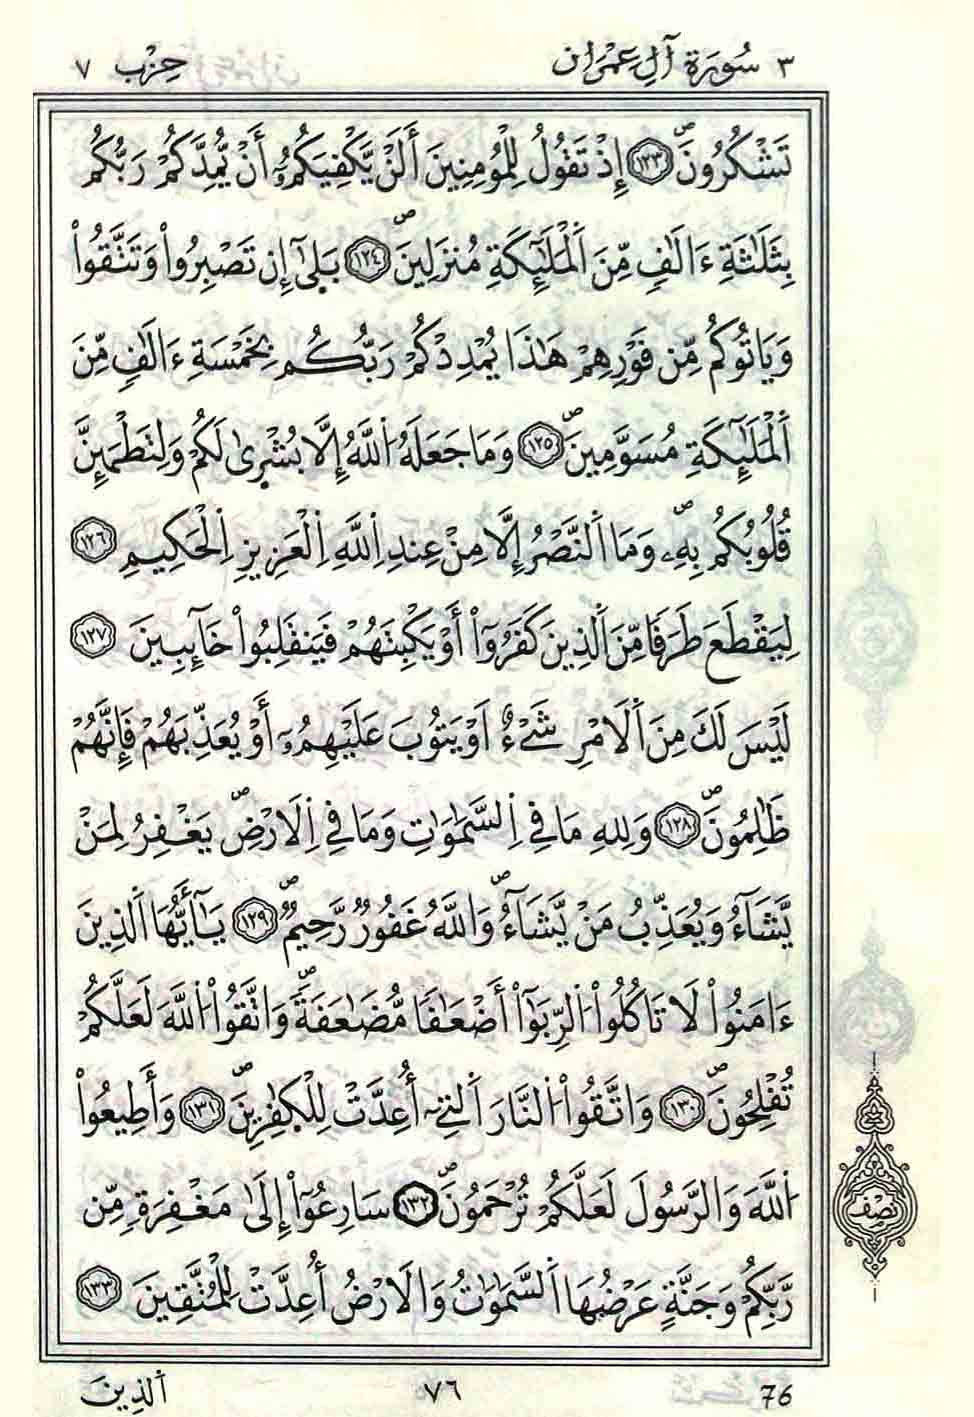 ٣ سُورَةُ آلِ عِمْرَان حِزْب ٧
تَشْكُرُونَۖ ١٢٣ إِذْ تَقُولُ لِلْمُومِنِينَ أَلَنْ يَّكْفِيَكُمُۥٓ أَنْ يُّمِدَّكُمْ رَبُّكُم
بِثَلَٰثَةِ ءَالَٰفٍ مِّنَ اَ۬لْمَلَٰٓئِكَةِ مُنزَلِينَۖ ١٢٤ بَلَىٰٓ إِن تَصْبِرُواْ وَتَتَّقُواْ
وَيَاتُوكُم مِّن فَوْرِهِمْ هَٰذَا يُمْدِدْكُمْ رَبُّكُم بِخَمْسَةِ ءَالَٰفٍ مِّنَ
اَ۬لْمَلَٰٓئِكَةِ مُسَوَّمِينَۖ ١٢٥ وَمَا جَعَلَهُ اُ۬للَّهُ إِلَّا بُشْرۭىٰ لَكُمْ وَلِتَطْمَئِنَّ
قُلُوبُكُم بِهِۦۖ وَمَا اَ۬لنَّصْرُ إِلَّا مِنْ عِندِ اِ۬للَّهِ اِ۬لْعَزِيزِ اِ۬لْحَكِيمِ ١٢٦
لِيَقْطَعَ طَرَفًا مِّنَ اَ۬لذِينَ كَفَرُوٓاْ أَوْ يَكْبِتَهُمْ فَيَنقَلِبُواْ خَآئِبِينَ ١٢٧
لَيْسَ لَكَ مِنَ اَ۬لَامْرِ شَےْءٌ اَوْ يَتُوبَ عَلَيْهِمُۥٓ أَوْ يُعَذِّبَهُمْ فَإِنَّهُمْ
ظَٰلِمُونَۖ ١٢٨ وَلِلهِ مَا فِي اِ۬لسَّمَٰوَٰتِ وَمَا فِي اِ۬لَارْضِۖ يَغْفِرُ لِمَنْ
يَّشَآءُ وَيُعَذِّبُ مَنْ يَّشَآءُۖ وَاللَّهُ غَفُورٌ رَّحِيمٌۖ ١٢٩ يَٰٓأَيُّهَا اَ۬لذِينَ
ءَامَنُواْ لَا تَاكُلُواْ اُ۬لرِّبَوٰٓاْ أَضْعَٰفًا مُّضَٰعَفَةًۖ وَاتَّقُواْ اُ۬للَّهَ لَعَلَّكُمْ
تُفْلِحُونَۖ ١٣٠ وَاتَّقُواْ اُ۬لنَّارَ اَ۬لتِےٓ أُعِدَّتْ لِلْكٰ۪فِرِينَۖ ١٣١ وَأَطِيعُواْ
اُ۬للَّهَ وَالرَّسُولَ لَعَلَّكُمْ تُرْحَمُونَۖ ١٣٢ سَارِعُوٓاْ إِلَىٰ مَغْفِرَةٍ مِّن
رَّبِّكُمْ وَجَنَّةٍ عَرْضُهَا اَ۬لسَّمَٰوَٰتُ وَالَارْضُ أُعِدَّتْ لِلْمُتَّقِينَ ١٣٣
نِصْف
اَ۬لذِينَ ٧٦ 76